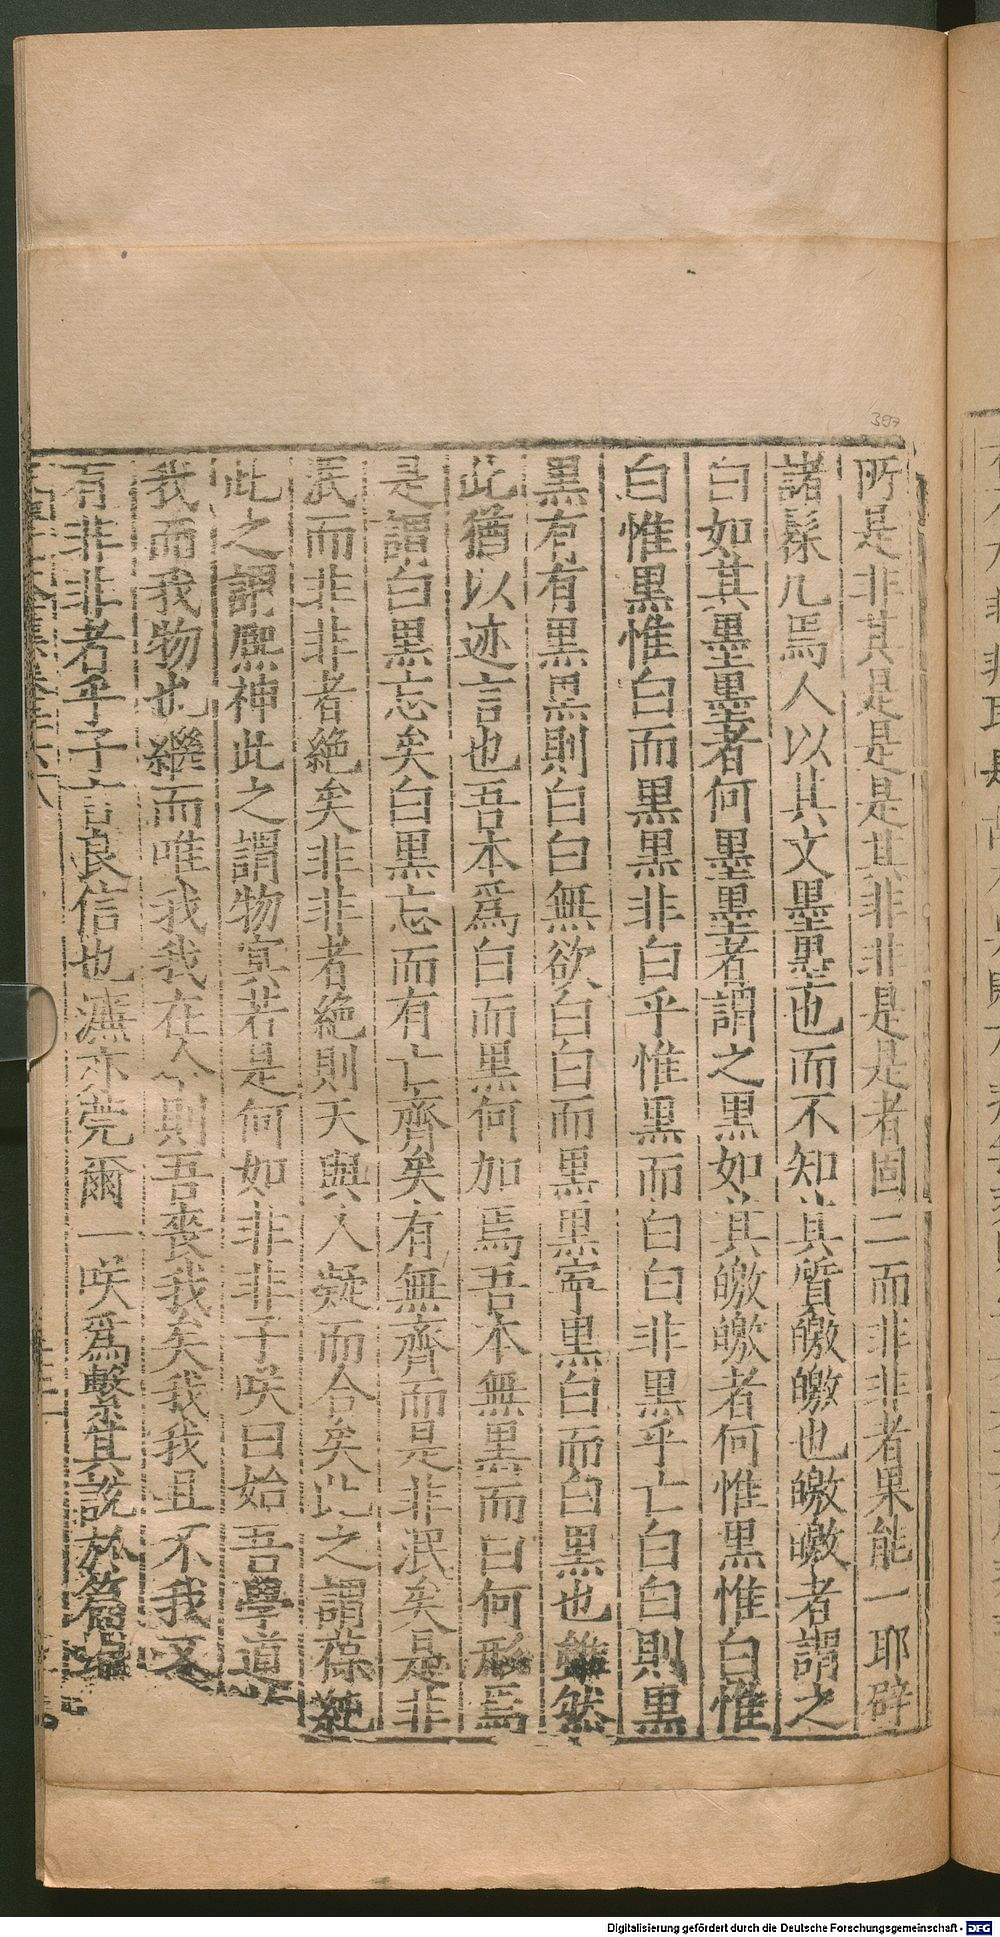 所是非其是是是其非非是是者固二而非非者果能一耶辟
諸髹几焉人以其文墨墨也而不知其質皦皦也皦皦者謂之
白如其墨墨者何墨墨者謂之黑如其皦皦者何惟黑惟白惟
白惟黑惟白而黑黑非白乎惟黑而白白非黑乎亡白白則黑
黑有有黑黑則白白無欲白白而黑黑寧黑白而白黑也雖然
此猶以迹言也吾本爲白而黑何加焉吾本無黑而白何形焉
是謂白黑忘矣白黑忘而有亡齊矣有無齊而是非泯矣是非
泯而非非者絕矣非非者絕則天與人凝而合矣此之謂葆純
此之謂熙神此之謂物冥若是何如非非子咲曰始吾學道
我而我物也繼而唯我我在今則吾喪我矣我我且不我又
有非非者乎子言良信也濂亦莞爾一咲爲繫其說於篇端
397
Digitalisierung gefördert durch die Deutsche Forschungsgemeinschaft - DFG